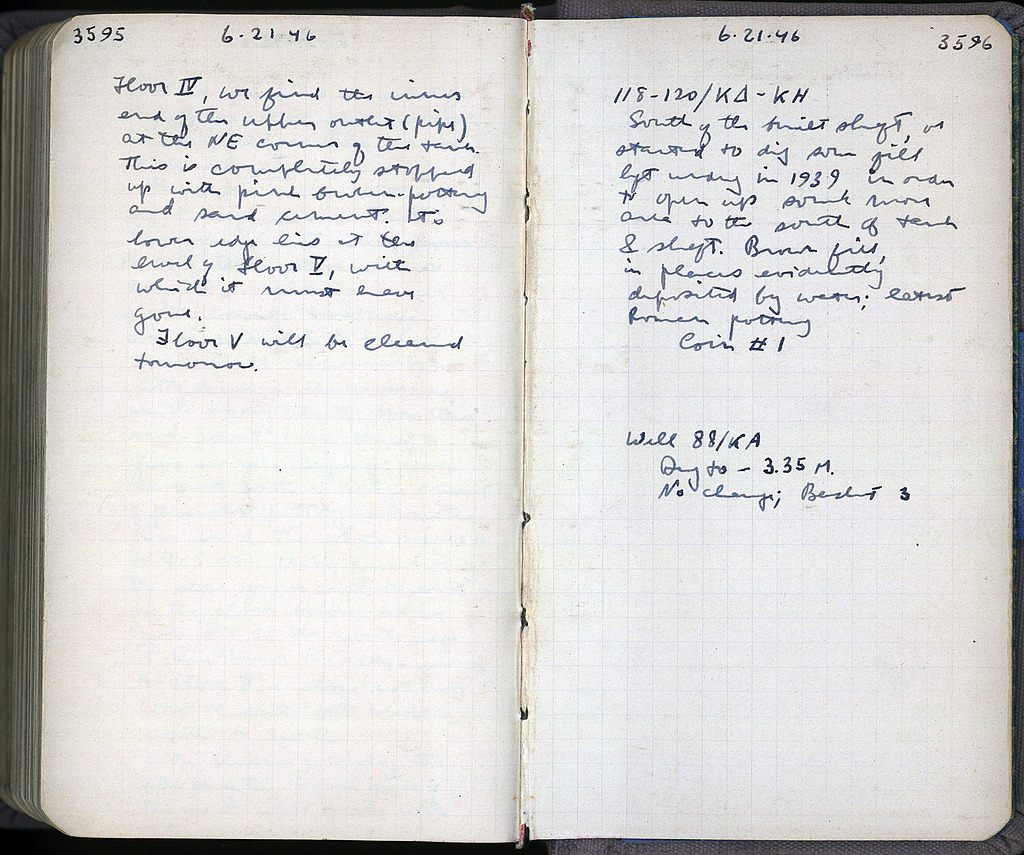 3595
6-21-46
Floor IV, we find the inner
end of the upper outlet (pipe)
at the NE corner of the tank.
This is completely stopped
up with pink broken-pottery
and sand cement. Its
lower edge lies at the
level of Floor V, with
which it must have
gone.
Floor V will be cleaned
tomorrow.
6-21-46
3596
118-120/ΚΔ-ΚΗ
South of the built shaft, we
started to dig some fill
left undug in 1939 in order
to open up some more
area to the south of tank
& shaft. Brown fill,
in places evidently
deposited by water; latest
Roman pottery
Coin #1
Well 88/ΚΑ
Dug to - 3.35 M.
No change; Basket 3